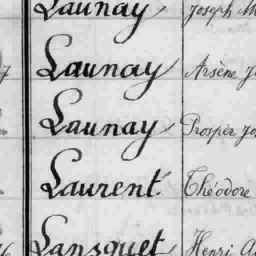 Launay Joseph M
Launay Arsène J
Launay Prosper Jo
Laurent Théodore
Lansquet Henri A